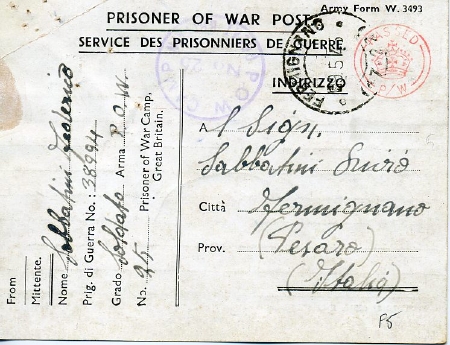 Army Form W. 3493
PRISONER OF WAR POST
SERVICE DES PRISONNIERS DE GUERRE.
INDIRIZZO
FERMIGNANO
PASSED
P/W
CAMP
A I Sign.
Sabbatini
Città Fermignano
Prov. (Pesaro)
(Italia)
P5
From
Mittente.
Nome Sabbatini
Prig. di Guerra No.: 38994
Grado Soldato Arma P.O.W.
No. 25 Prisoner of War Camp,
Great Britain.